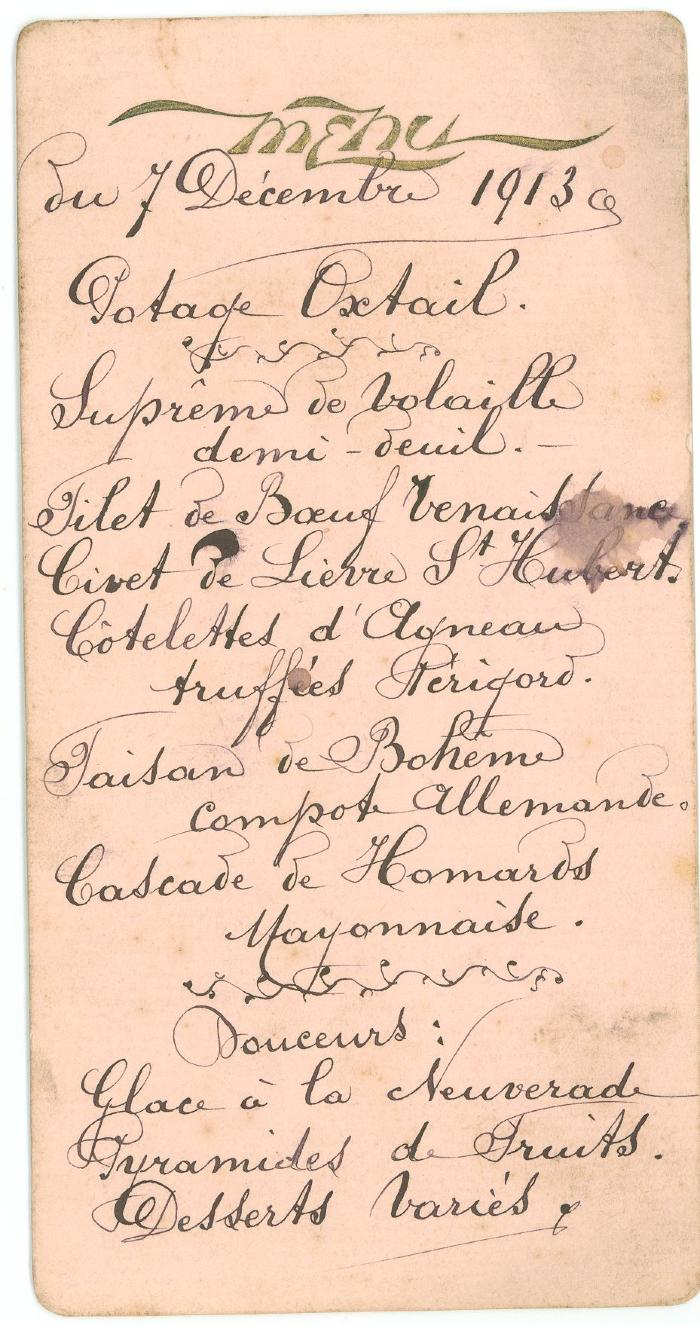 MENU
du 7 Décembre 1913
Potage Oxtail.
Suprême de Volaille
demi-deuil. -
Filet de Bœuf Venaissance
Civet de Lièvre St Hubert.
Côtelettes d'Agneau
truffées Périgord.
Faisan de Bohême
compote Allemande.
Cascade de Homards
Mayonnaise.
Douceurs :
Glace à la Neuverade
Pyramides de Fruits.
Desserts Variés.